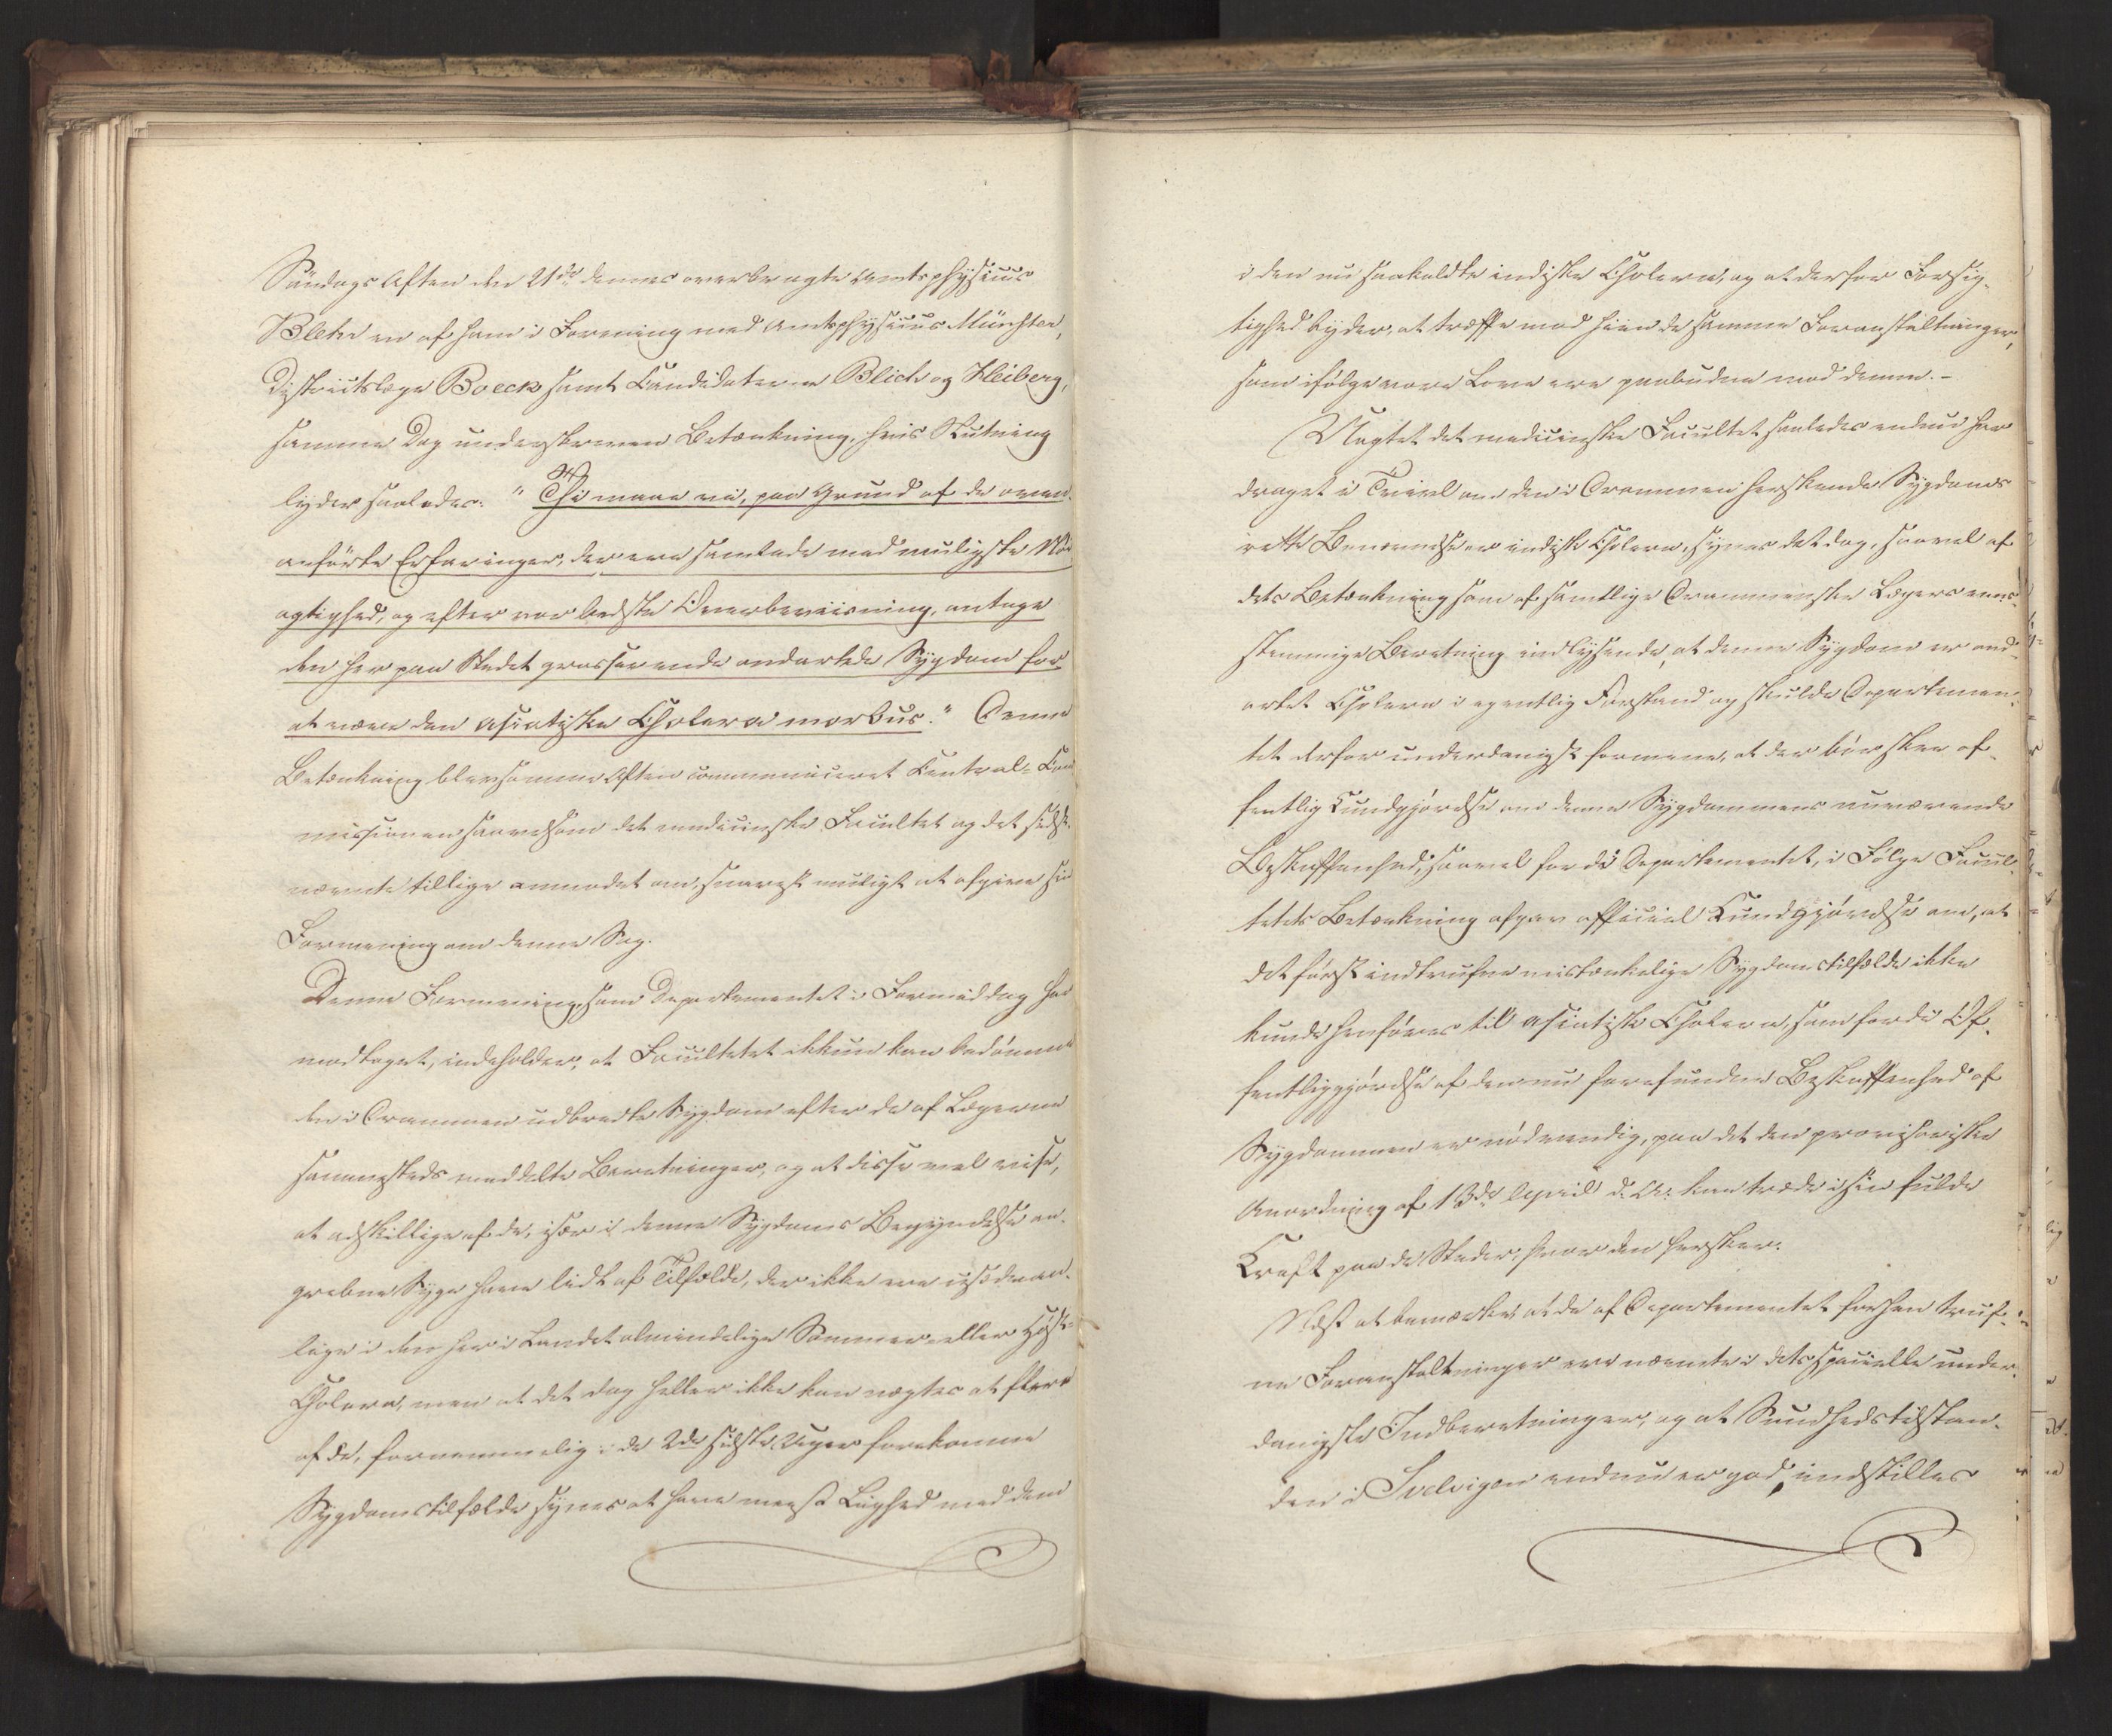 Søndags Aften den 21de dennes overbragte Amtsphysicus
Blehr en af ham i Forening med Amtsphysicus Münster,
Districtslæge Boeck samt Candidaterne Blich og Heiberg,
samme Dag underskreven Betænkning, hvis Slutning
lyder saaledes: "Thi maae vi, paa Grund af de oven
anførte Erfaringer, der ere samlede med muligste Nöi
agtighed, og efter vor bedste Overbeviisning, antage
den her paa Stedet grasserende ondartede Sygdom for
at være den asiatiske Cholera morbus." Denne
Betænkning blev samme Aften communiceret Central-Com
missionen saavelsom det medicinske Facultet og det sidst
nævnte tillige anmodet om, snarest muligt at afgive sin
Formening om denne Sag.
Denne Formening, som Departementet i Formiddag har
modtaget, indeholder, at Facultetet ikkun kan bedömme
den i Drammen udbredte Sygdom efter de af Lægerne
sammesteds meddelte Beretninger, og at disse vel vise,
at adskillige af de, især i denne Sygdoms Begyndelse an-
grebne Syge have lidt af Tilfælde, der ikke ere usædvan-
lige i den her i Landet almindelige Sommer- eller Höst-
Cholera, men at det dog heller ikke kan nægtes at flere
af de, fornemmelig i de 2de sidste Uger forekomne
Sygdomstilfælde synes at have meest Liighed med dem
i den nu saakaldte indiske Cholera, og at derfor Forsig-
tighed byder, at træffe mod hiin de samme Foranstaltninger,
som ifølge vore Love ere paabudne mod denne.-
Uagtet det medicinske Facultet saaledes endnu har
draget i Tvivl om den i Drammen herskende Sygdoms
rette Benævnelse er indisk Cholera, synes det dog, saavel af
dets Betænkning som af samtlige Drammenske Lægers eens-
stemmige Beretning indlysende, at denne Sygdom er ond-
artet Cholera i egentlig Forstand og skulde Departemen-
tet derfor underdanigst formene, at der bör skee of-
fentlig Kundgjörelse om denne Sygdommens nuværende
Beskaffenhed, saavel fordi Departementet, i Fölge Facul-
tetets Betænkning afgav officiel Kundgjörelse om, at
det först indtrufne mistænkelige Sygdomstilfælde ikke
kunde henföres til asiatisk Cholera, som fordi Of-
fentliggjörelse af den nu forefundne Beskaffenhed af
Sygdommen er nödvendig, paa det den provisoriske
Anordning af 13de April d. A. kan træde i sin fulde
Kraft paa de Steder, hvor den hersker.
Næst at bemærke, at de af Departementet forhen truf-
ne Foranstaltninger ere nævnte i dets specielle under-
danigste Indberetninger, og at Sundhedstilstan-
den i Svelvigen endnu er god, indstilles